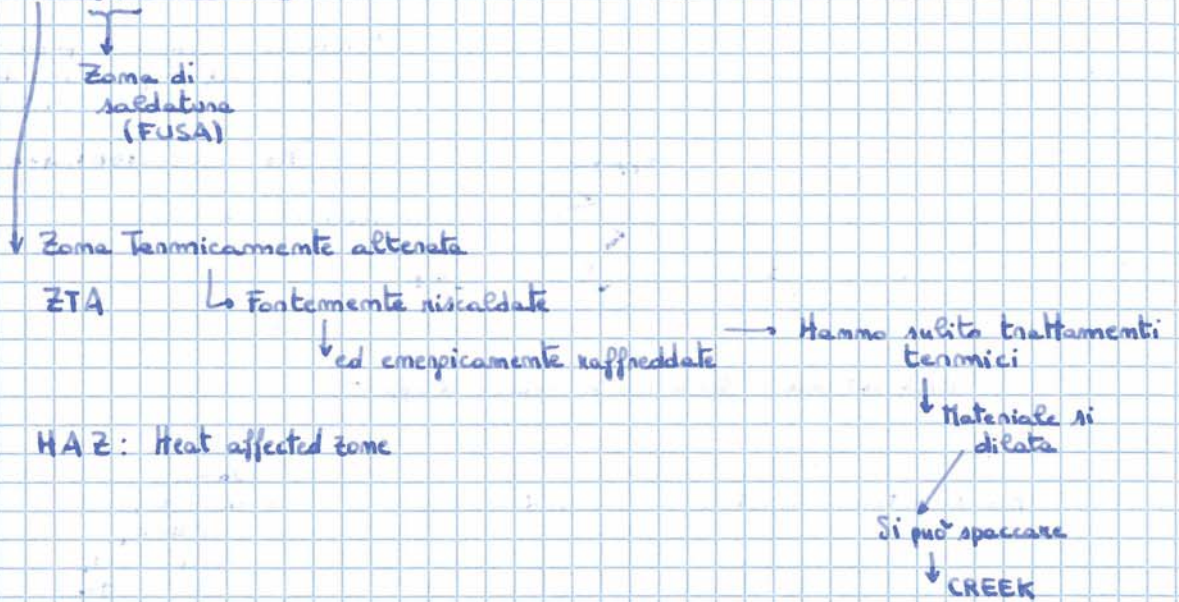 Zona di
saldatura
(FUSA)
Zona Termicamente alterata
ZTA
Fortemente riscaldate
ed energicamente raffreddate
Hanno subito trattamenti
termici
Materiale si
dilata
HAZ: Heat affected zone
Si può spaccare
CREEK